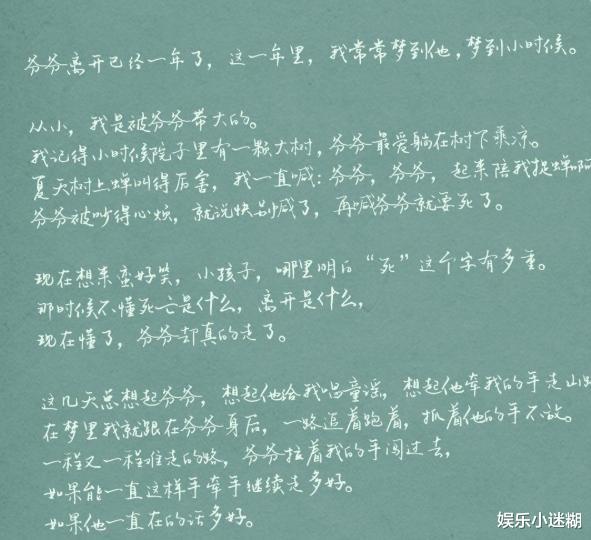 爷爷离开已经一年了，这一年里，我常常梦到他，梦到小时候。
从小，我是被爷爷带大的。
我记得小时候院子里有一颗大树，爷爷最爱躺在树下乘凉。
夏天树上蝉叫得厉害，我一直喊：爷爷，爷爷，起来陪我捉蝉啊
爷爷被吵得心烦，就说快别喊了，再喊爷爷就要死了。
现在想来蛮好笑，小孩子，哪里明白“死”这个字有多重。
那时候不懂死亡是什么，离开是什么，
现在懂了，爷爷却真的走了。
这几天总想起爷爷，想起他给我唱童谣，想起他牵我的手走山路
在梦里我就跟在爷爷身后，一路追着跑着，抓着他的手不放。
一程又一程难走的路，爷爷拉着我的手闯过去，
如果能一直这样手牵手继续走多好。
如果他一直在的话多好。
娱乐小迷糊